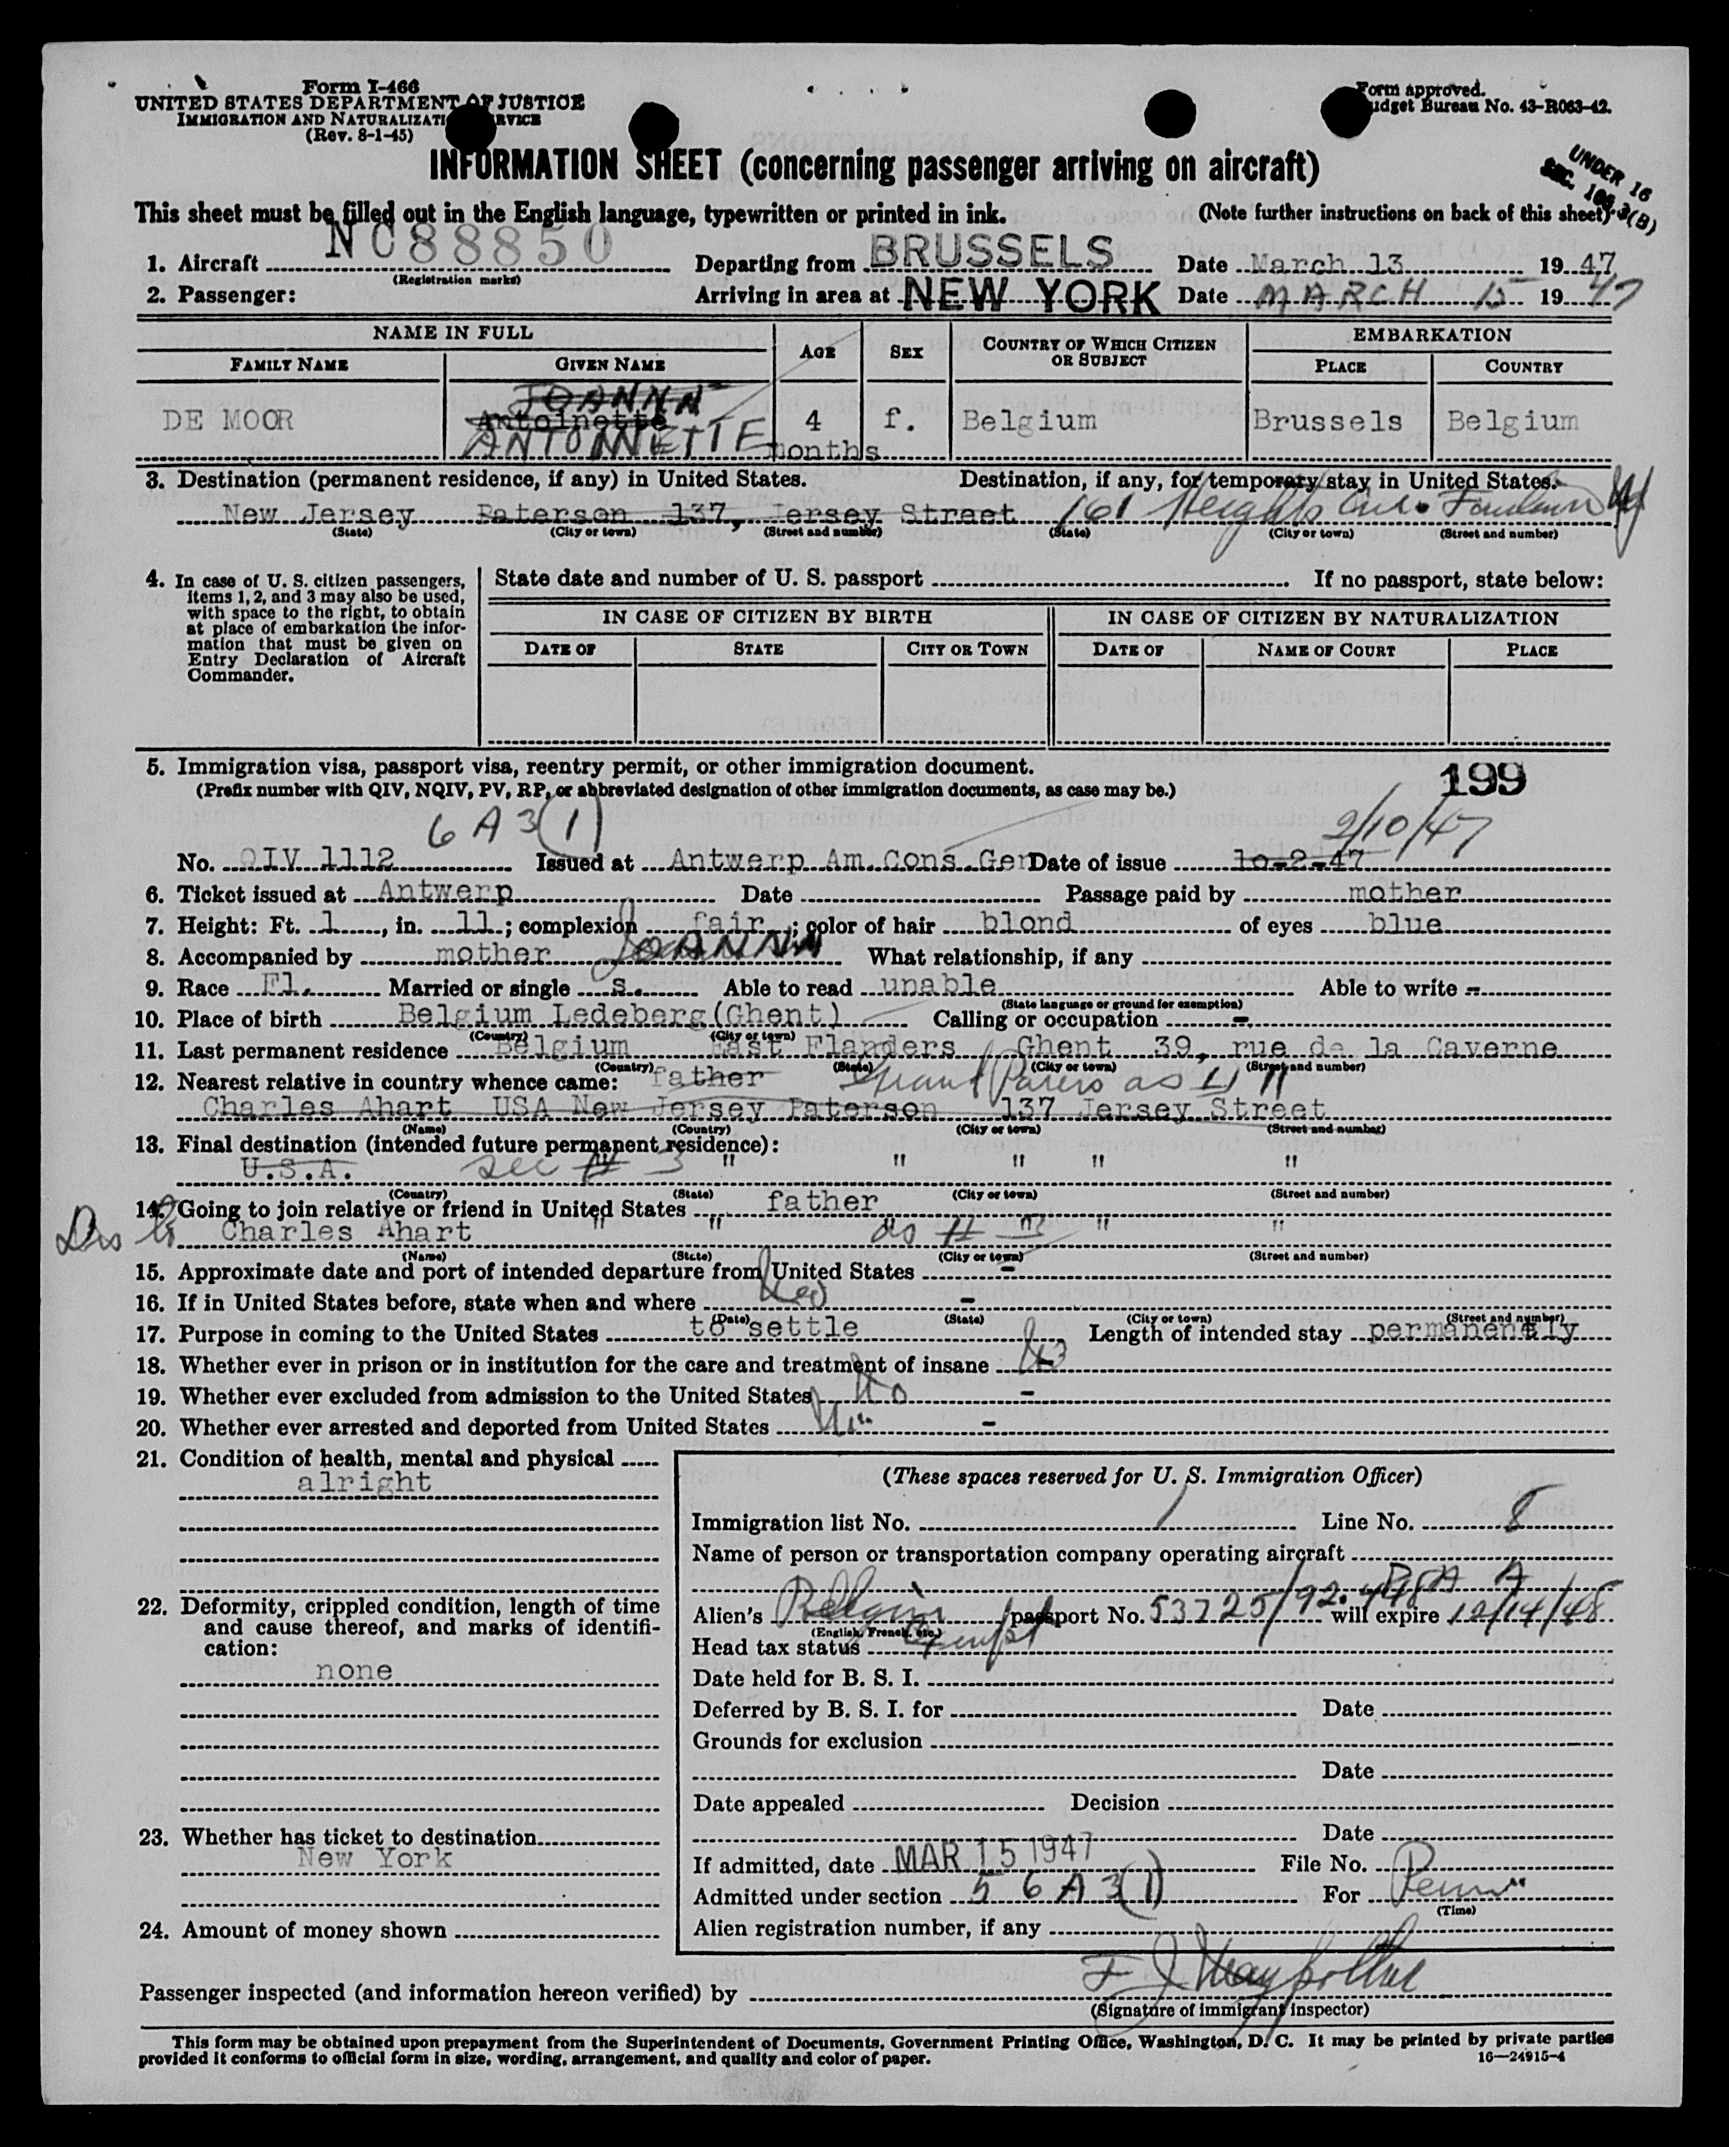 Form I-466
UNITED STATES DEPARTMENT OF JUSTICE
IMMIGRATION AND NATURALIZATION SERVICE
(Rev. 8-1-45)
Form approved.
Budget Bureau No. 43-R063-42.
UNDER 16
INFORMATION SHEET (concerning passenger arriving on aircraft)
This sheet must be filled out in the English language, typewritten or printed in ink. (Note further instructions on back of this sheet)
1. Aircraft NC88850 Departing from BRUSSELS Date March 13 1947
(Registration marks)
2. Passenger: Arriving in area at NEW YORK Date MARCH 15 1947
NAME IN FULL AGE SEX COUNTRY OF WHICH CITIZEN OR SUBJECT EMBARKATION
FAMILY NAME GIVEN NAME PLACE COUNTRY
JOANNA
DE MOOR Antoinette 4 f. Belgium Brussels Belgium
ANTOINETTE months
3. Destination (permanent residence, if any) in United States. Destination, if any, for temporary stay in United States.
New Jersey Paterson 137, Jersey Street 161 Heights Ave.
(State) (City or town) (Street and number) (State) (City or town) (Street and number)
4. In case of U. S. citizen passengers, items 1, 2, and 3 may also be used, with space to the right, to obtain at place of embarkation the information that must be given on Entry Declaration of Aircraft Commander.
State date and number of U. S. passport If no passport, state below:
IN CASE OF CITIZEN BY BIRTH IN CASE OF CITIZEN BY NATURALIZATION
DATE OF STATE CITY OR TOWN DATE OF NAME OF COURT PLACE
5. Immigration visa, passport visa, reentry permit, or other immigration document. 199
(Prefix number with QIV, NQIV, PV, RP, or abbreviated designation of other immigration documents, as case may be.)
6 A 3(1) 2/10/47
No. QIV 1112 Issued at Antwerp Am. Cons. Gen Date of issue 10-2-47
6. Ticket issued at Antwerp Date Passage paid by mother
7. Height: Ft. 1, in. 11; complexion fair; color of hair blond of eyes blue
8. Accompanied by mother JOANNA What relationship, if any
9. Race Fl. Married or single s. Able to read unable Able to write -
(State language or ground for exemption)
10. Place of birth Belgium Ledeberg (Ghent) Calling or occupation -
(Country) (City or town)
11. Last permanent residence Belgium East Flanders Ghent 39, rue de la Caverne
(Country) (State) (City or town) (Street and number)
12. Nearest relative in country whence came: father Grand as 11
Charles Ahart USA New Jersey Paterson 137 Jersey Street
(Name) (Country) (City or town) (Street and number)
13. Final destination (intended future permanent residence):
U.S.A. see # 3 " " " " "
(Country) (State) (City or town) (Street and number)
14. Going to join relative or friend in United States father
Charles Ahart " " " as # 3 " "
(Name) (State) (City or town) (Street and number)
15. Approximate date and port of intended departure from United States -
16. If in United States before, state when and where -
(Date) (State) (City or town) (Street and number)
17. Purpose in coming to the United States to settle Length of intended stay permanently
18. Whether ever in prison or in institution for the care and treatment of insane No -
19. Whether ever excluded from admission to the United States No -
20. Whether ever arrested and deported from United States No -
21. Condition of health, mental and physical
alright
22. Deformity, crippled condition, length of time and cause thereof, and marks of identification:
none
23. Whether has ticket to destination
New York
24. Amount of money shown
(These spaces reserved for U. S. Immigration Officer)
Immigration list No. 1 Line No. 8
Name of person or transportation company operating aircraft
P A A
Alien's Belgian passport No. 53725/92.448 will expire 12/14/48
(English, French, etc.)
Head tax status Exempt
Date held for B. S. I.
Deferred by B. S. I. for Date
Grounds for exclusion
Date
Date appealed Decision
Date
If admitted, date MAR 15 1947 File No.
Admitted under section 5 6 A 3(1) For Perm
(Time)
Alien registration number, if any
Passenger inspected (and information hereon verified) by
(Signature of immigrant inspector)
This form may be obtained upon prepayment from the Superintendent of Documents, Government Printing Office, Washington, D. C. It may be printed by private parties
provided it conforms to official form in size, wording, arrangement, and quality and color of paper. 16—24915-4